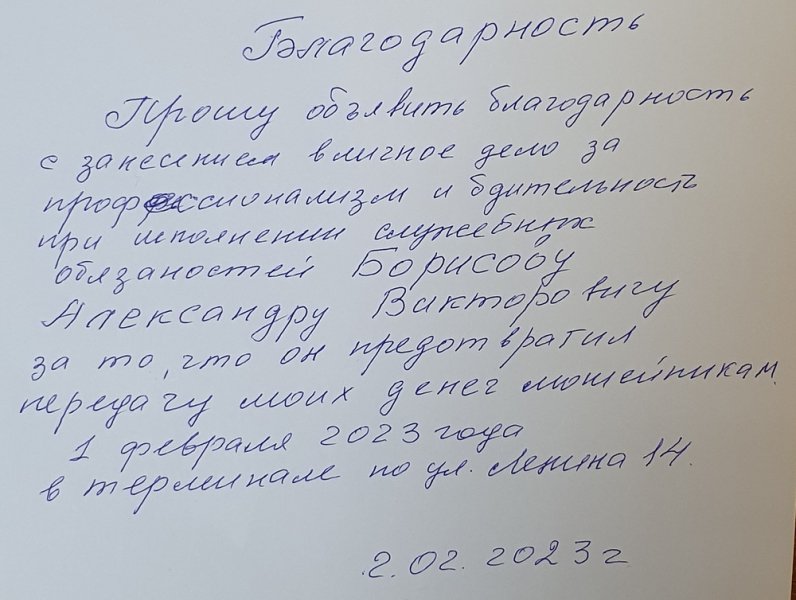 Благодарность
Прошу объявить благодарность
с занесением в личное дело за
профессионализм и бдительность
при исполнении служебных
обязаностей Борисову
Александру Викторовичу
за то, что он предотвратил
передачу моих денег мошейникам
1 февраля 2023 года
в терминале по ул. Ленина 14.
2.02.2023 г